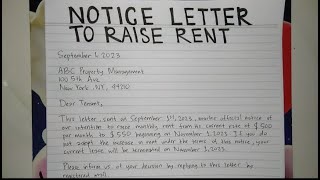 NOTICE LETTER
TO RAISE RENT
September 1, 2023
ABC Property Management
100 5th Ave
New York, NY,
Dear Tenant,
This letter, sent on September 1st, 2023, is official notice of
our intention to raise monthly rent from its current rate of $500
per month to $550 beginning on November 1, 2023. If you do
not accept the increase in rent under the terms of this notice, your
current lease will be terminated on November 1, 2023.
Please inform us of your decision by replying to this letter by
registered mail.